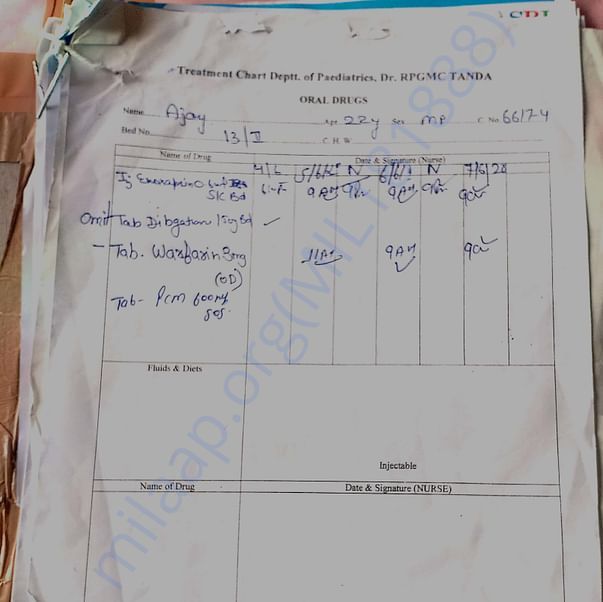 Treatment Chart Deptt. of Paediatrics, Dr. RPGMC TANDA
ORAL DRUGS
Name Ajay Age 22y Sex C. No. 66174
Bed No. 13/II C.H.W.
Name of Drug Date & Signature (Nurse)
4/6 5/6/ N 6/6/ N 7/6/20
Inj Enoxaparin 0.6ml
S/C Bd 9AM 9AM
Omit Tab Dibgation 150mg Bd
Tab. Warfarin 3mg 11AM 9AM
(OD)
Tab- Pcm 600mg
sos.
Fluids & Diets
Injectable
Name of Drug Date & Signature (NURSE)
milaap.org(MILP21888)